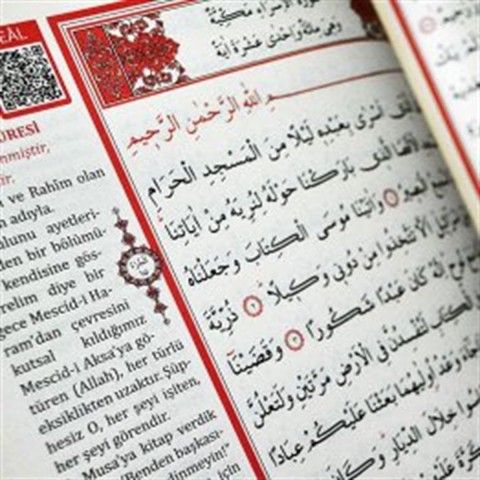 EÂL
ÛRESİ
nmiştir,
ir.
ve Rahîm olan
n adıyla.
olunu ayetleri-
den bir bölümü-
kendisine gös-
relim diye bir
gece Mescid-i Ha-
ram'dan çevresini
kutsal kıldığımız
Mescid-i Aksa'ya gö-
türen (Allah), her türlü
eksiklikten uzaktır. Şüp-
hesiz O, her şeyi işiten,
her şeyi görendir.
Musa'ya kitap verdik
"Benden başkası-
edinmeyin!"
için
سُورَةُ الْاِسْرَاءِ مَكِّيَّةٌ
وَهِيَ مِائَةٌ وَاِحْدٰى عَشْرَةَ اٰيَةً
مِ اللّٰهِ الرَّحْمٰنِ الرَّحِيمِ
اَسْرٰى بِعَبْدِهِ لَيْلًا مِنَ الْمَسْجِدِ الْحَرَامِ
الْاَقْصَا الَّذِى بَارَكْنَا حَوْلَهُ لِنُرِيَهُ مِنْ اٰيَاتِنَا
الْبَصِيرُ ١ وَاٰتَيْنَا مُوسَى الْكِتَابَ وَجَعَلْنَاهُ
اَلَّا تَتَّخِذُوا مِنْ دُونِى وَكِيلًا ٢ ذُرِّيَّةَ
نُوحٍ اِنَّهُ كَانَ عَبْدًا شَكُورًا ٣ وَقَضَيْنَا
الْكِتَابِ لَتُفْسِدُنَّ فِى الْاَرْضِ مَرَّتَيْنِ وَلَتَعْلُنَّ
جَاءَ وَعْدُ اُولٰيهُمَا بَعَثْنَا عَلَيْكُمْ عِبَادًا
خِلَالَ الدِّيَارِ وَكَانَ